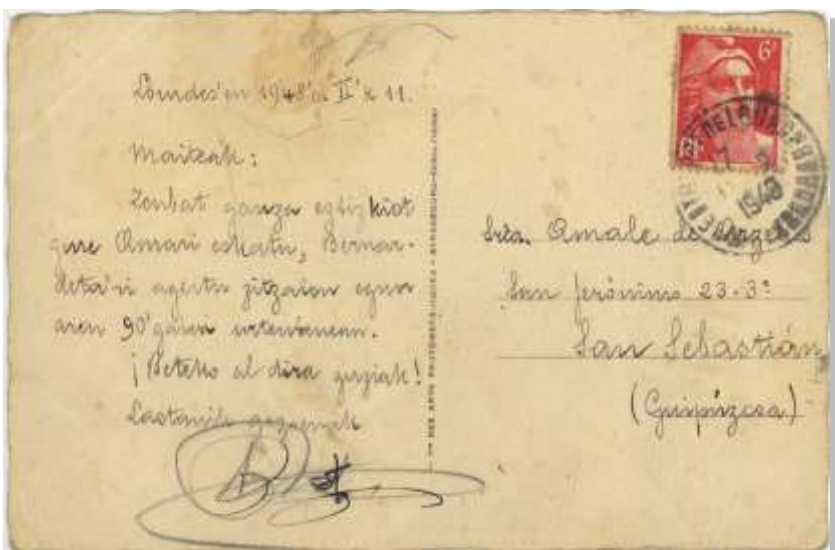 Lourdes'en 1948'a. II'k 11.
Maiteak:
Zenbat gauza eztizkiot
gure Amari eskatu, Bernar-
deta'ri agertu zitzaion egun
aren 90'garen urteurrenean.
¡Beteko al dira guziak!
Laztanik gozoenak
6F
1948
Srta. Amale de
San Jerónimo 23-3º
San Sebastián
(Guipúzcoa)